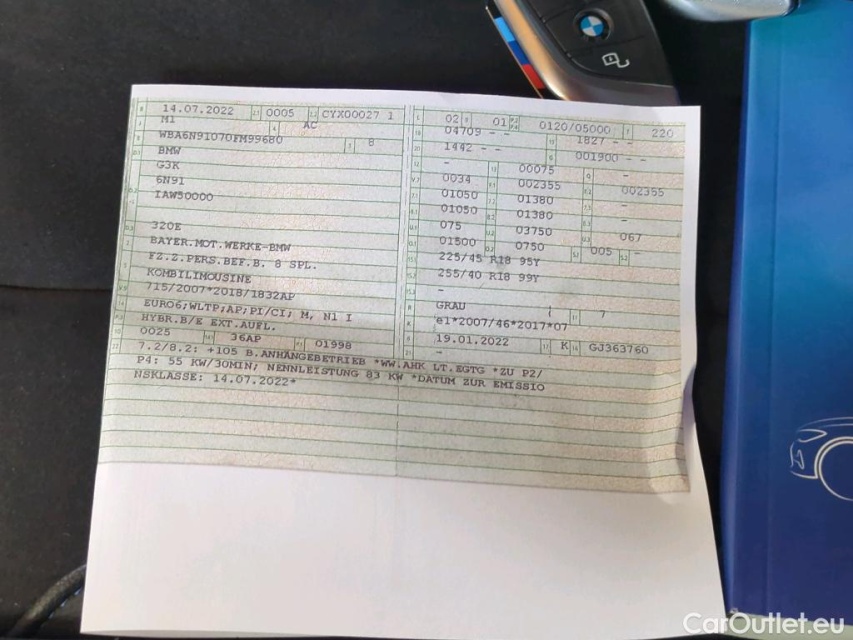 14.07.2022 0005 CYX00027 1
M1 AC
WBA6N91070FM99680 8
BMW
G3K
6N91
IAW50000
320E
BAYER.MOT.WERKE-BMW
FZ.Z.PERS.BEF.B. 8 SPL.
KOMBILIMOUSINE
715/2007*2018/1832AP
EURO6;WLTP;AP;PI/CI; M, N1 I
HYBR.B/E EXT.AUFL.
0025 36AP 01998
02 01 0120/05000 220
04709 - - 1827 - -
1442 - - 001900 - -
- 00075 -
0034 002355 002355
01050 01380 -
01050 01380 -
075 03750 067
01500 0750 005 -
225/45 R18 95Y
255/40 R18 99Y
-
GRAU 7
e1*2007/46*2017*07
19.01.2022 K GJ363760
-
7.2/8.2: +105 B.ANHÄNGEBETRIEB *WW.AHK LT.EGTG *ZU P2/
P4: 55 KW/30MIN; NENNLEISTUNG 83 KW *DATUM ZUR EMISSIO
NSKLASSE: 14.07.2022*
CarOutlet.eu